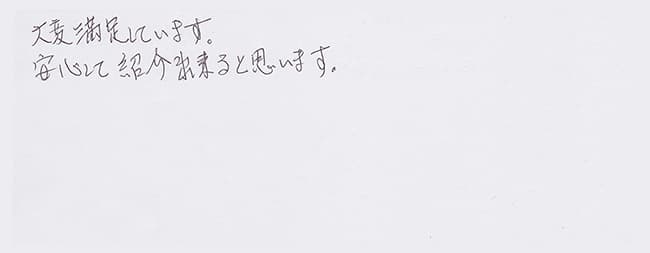 大変満足しています。
安心して紹介出来ると思います。